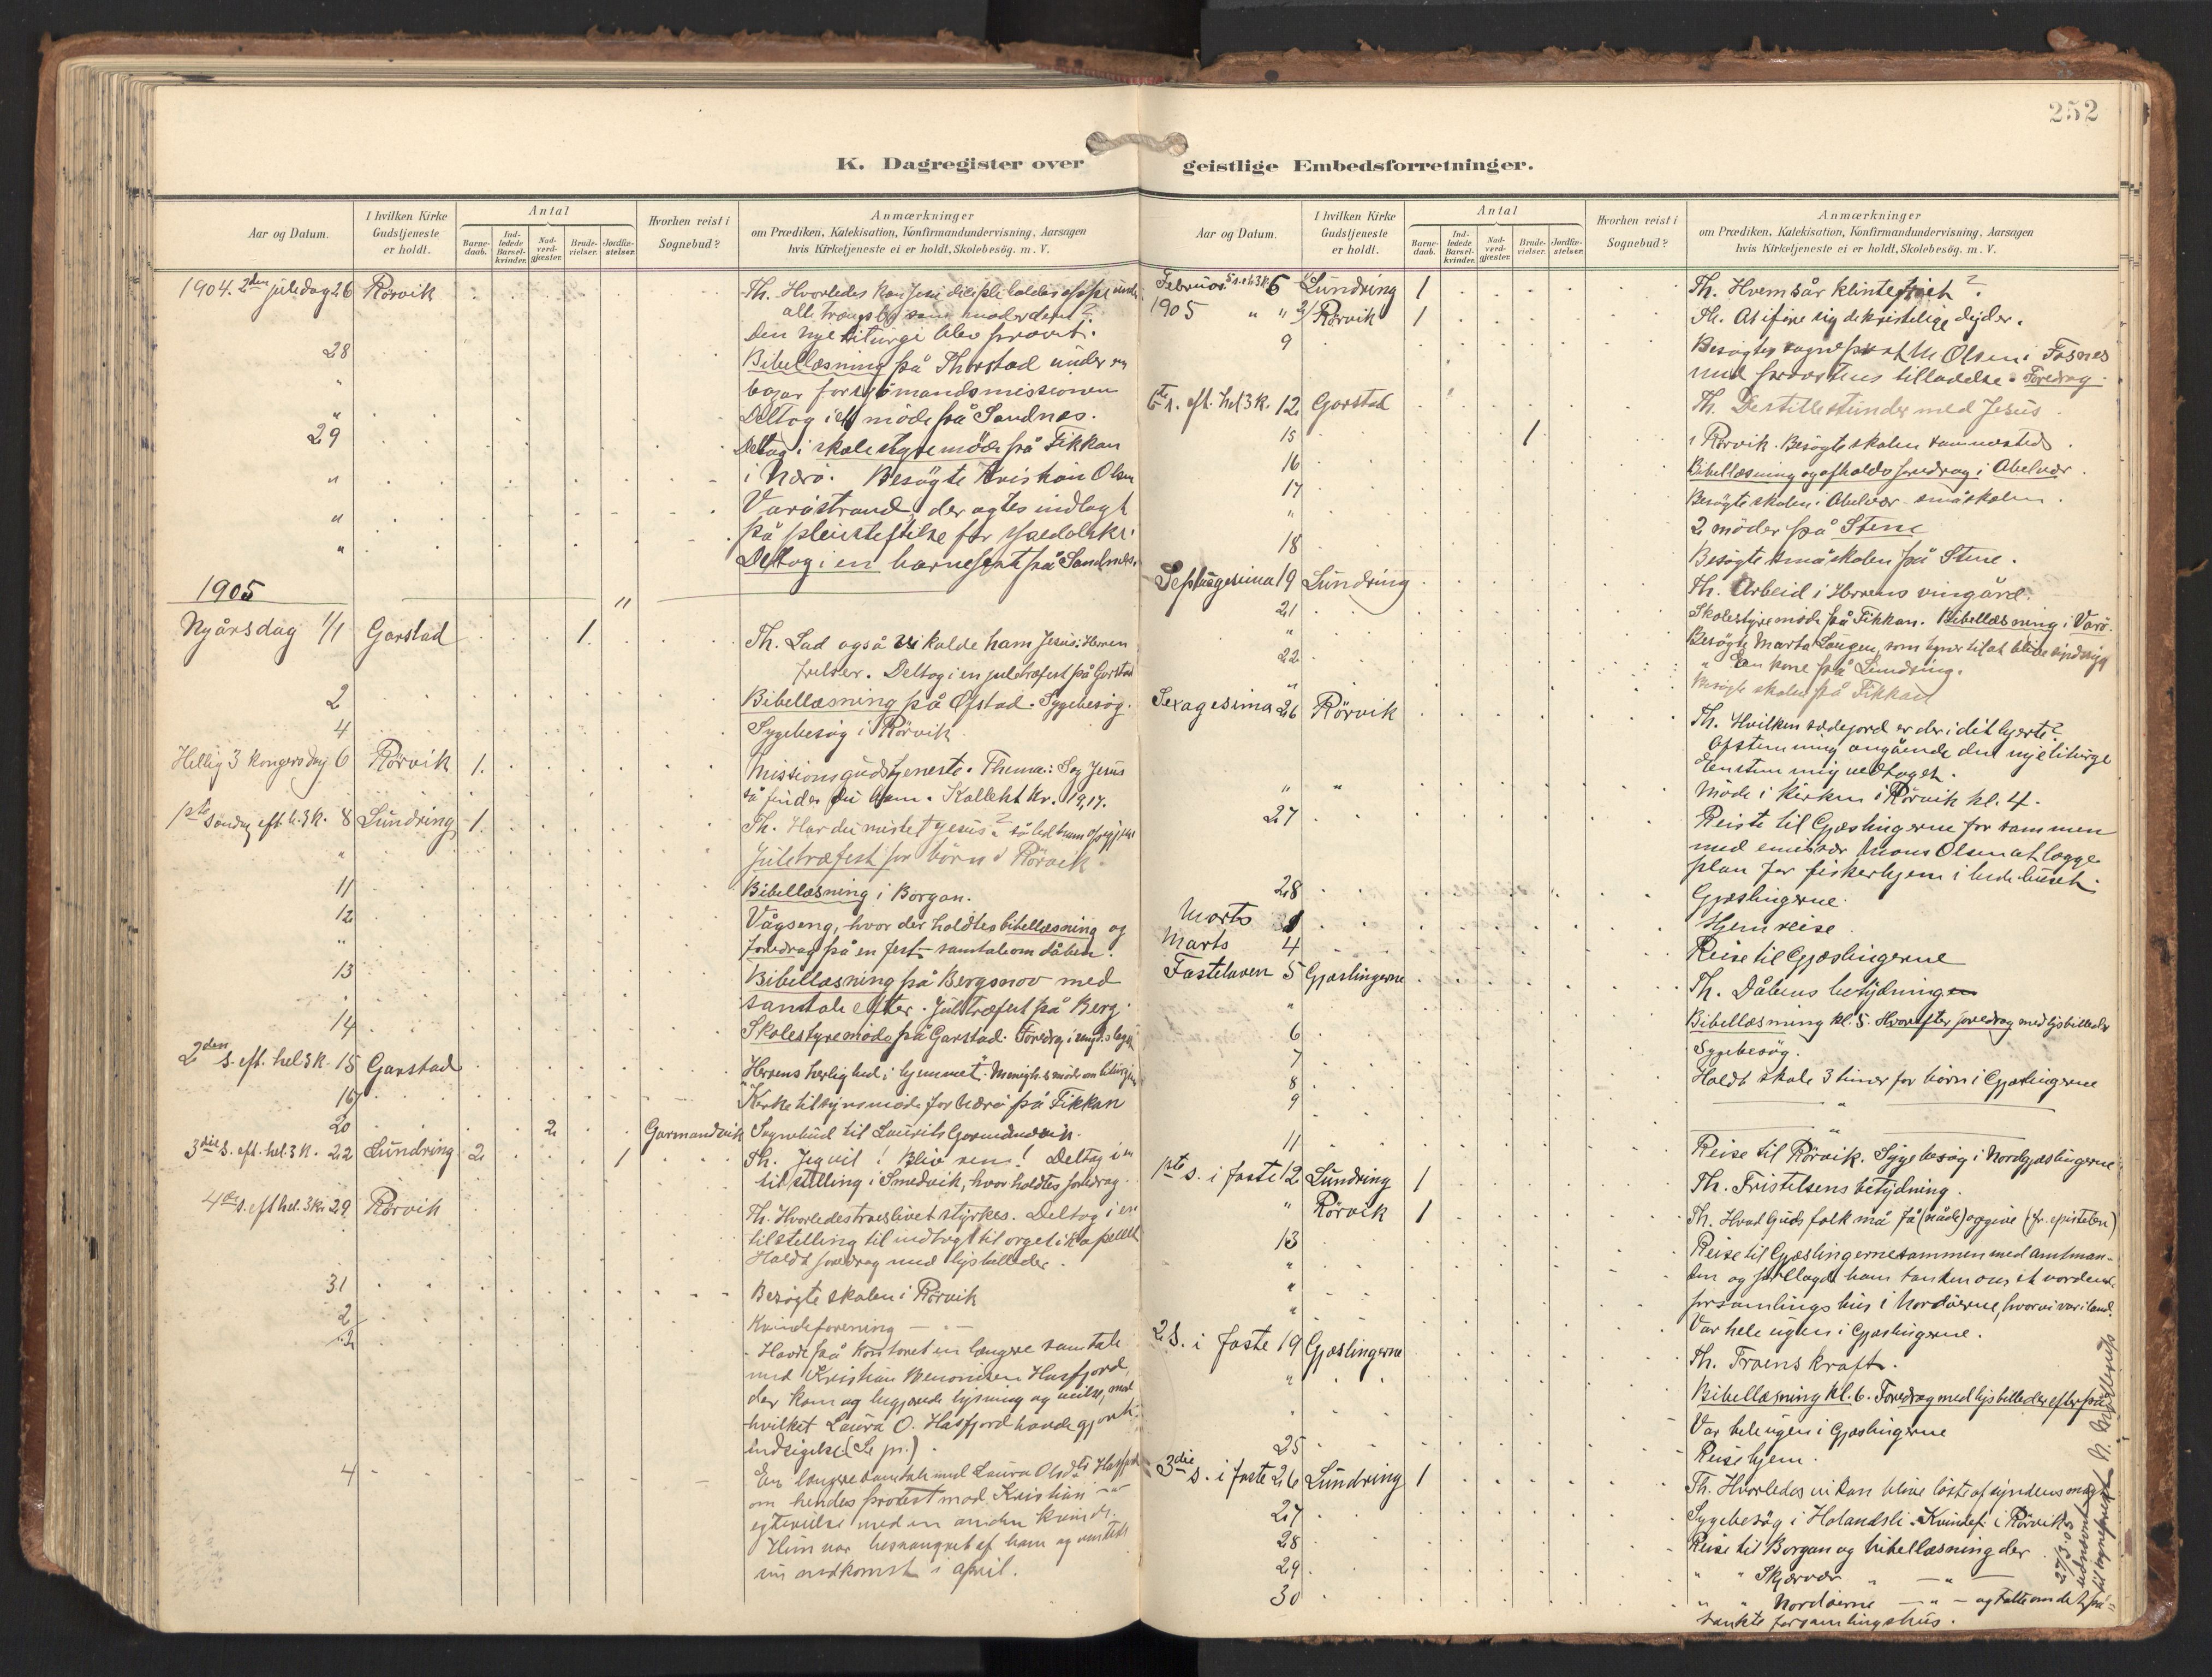 252
K. Dagregister over geistlige Embedsforretninger.
Aar og Datum.
I hvilken Kirke Gudstjeneste er holdt.
Antal
Barne-daab.
Ind-ledede Barsel-kvinder.
Nad-verd-gjæster.
Brude-vielser.
Jordfæ-stelser.
Hvorhen reist i Sognebud?
Anmærkninger
om Prædiken, Katekisation, Konfirmandundervisning, Aarsagen
hvis Kirketjeneste ei er holdt, Skolebesög. m. V.
1904. 2den juledag 26 Rörvik Th. Hvorledes kan Jesu
Den nye liturgi blev prøvet.
28 Bibellæsning på Thorstad under en
bazar for sjömandsmissionen
" Deltog i et möde på Sandnæs.
29 Deltog i skolestyremöde på Fikkan
" i Nærö. Besögte Kristian Olsen
" Varöstrand, der agtes indlagt
på pleiestiftelse for spedalske.
" Deltog i en barnefest på Sandnæs.
1905
Nyårsdag 1/1 Garstad 1. Th. Lad også os kalde ham Jesus: Herren
frelser. Deltog i en juletræfest på Garstad
2 Bibellæsning på Ofstad. Sygebesög.
4 Sygebesög i Rörvik
Hellig 3 kongersdag 6 Rörvik 1. Missionsgudstjeneste. Thema: Søg Jesus
så finder du ham. Kollekt kr. 19,17.
1ste söndag eft. h. 3 k. 8 Lundring 1. Th. Har du mistet Jesus?
" Juletræfest for börn i Rörvik.
11 Bibellæsning i Borgan.
12 Vågseng, hvor der holdtes bibellæsning og
" foredrag på en fest - samtale om dåben.
13 Bibellæsning på Bergsnov med
samtale efter. Juletræfest på Berg.
14 Skolestyremöde på Garstad. Foredrag i
2den s. eft. hel 3 k. 15 Garstad Herrens herlighed i hjemmet.
16 Kirketilsynsmöde for Nærö på Fikkan
20 2 Garmandvik Sognebud til Laurits Garmandvik.
3die s. eft. hel. 3 k. 22 Lundring 2 1 Th. Jeg vil! Bliv ren! Deltog i en
tilstelling i Smedvik, hvor holdtes foredrag.
4de s. eft hel. 3 k. 29 Rörvik Th. Hvorledes troeslivet styrkes. Deltog i en
tilstelling til indtægt til orgel i kapellet
Holdt foredrag med lysbilleder.
31 Besögte skolen i Rörvik
2 Kvindeforening — " —
3 Havde på kontoret en længere samtale
med Kristian Havfjord,
der kom og begjærede lysning og vielse, mod
hvilket Laura O. Hasfjord havde gjort
indsigelse
4 En længere samtale med Laura
om hendes protest mod Kristian
egtevielse med en anden kvinde.
Hun var besvangret af ham og ventet
sin nedkomst i april.
Aar og Datum.
I hvilken Kirke Gudstjeneste er holdt.
Antal
Barne-daab.
Ind-ledede Barsel-kvinder.
Nad-verd-gjæster.
Brude-vielser.
Jordfæ-stelser.
Hvorhen reist i Sognebud?
Anmærkninger
om Prædiken, Katekisation, Konfirmandundervisning, Aarsagen
hvis Kirketjeneste ei er holdt, Skolebesög. m. V.
Februar 6 Lundring 1 Th. Hvem sår klinten?
1905 " " Rörvik 1 Th. At iføre sig de kristelige dyder.
9 Olsen i Fosnes
med tilladelse. Foredrag.
6te s. eft. hel 3 k. 12 Garstad Th. De stille stunder med Jesus.
15 1 i Rörvik. Besögte skolen sammesteds.
16 Bibellæsning og afholdt foredrag i Abelvær.
17 Besögte skolen i Abelvær - småskolen.
" 2 möder på Steine
18 Besögte småskolen på Steine.
Septuagesima 19 Lundring Th. Arbeid i Herrens vingård.
21 Skolestyremöde på Fikkan. Bibellæsning i Varö.
" Besögte Marta
22 " En kone på Lundring.
" Besögte skolen på Fikkan
Sexagesima 26 Rörvik Th. Hvilken sædejord er der i dit hjerte?
Afstemning angående den nye liturgi
Enstemmig vedtaget.
" " Möde i kirken i Rörvik kl. 4.
27 Reiste til Gjæslingerne for sammen
med emissær Olsen at lægge
plan for fiskerhjem i
28 Gjæslingerne.
Marts 1 Hjemreise
Marts 4 Reise til Gjæslingerne
Fastelaven 5 Gjæslingerne Th. Dåbens betydning
" Bibellæsning kl. 5. Hvorefter foredrag med lysbilleder
6 Sygebesög.
7 Holdt skole 3 timer for börn i Gjæslingerne
8 "
9 "
11 Reise til Rörvik. Sygebesög i Nordgjæslingerne
1ste s. i faste 12 Lundring 1 Th. Fristelsens betydning.
" Rörvik 1 Th. Hvad Guds folk må få (nåde) og give (fr. epistelen)
13 Reise til Gjæslingerne sammen med amtman-
" den og forelagde ham tanken om et vordende
" forsamlingshus i Nordöerne, hvor vi var i land.
" Var hele ugen i Gjæslingerne.
2 s. i faste 19 Gjæslingerne Th. Troens kraft.
" Bibellæsning kl. 6. Foredrag med lysbilleder efterpå
" Var hele ugen i Gjæslingerne
25 Reise hjem.
3die s. i faste 26 Lundring 1 Th. Hvorledes vi kan blive löste af syndens magt
27 Sygebesög i Holandsli. Kvindef. i Rörvik
28 Reise til Borgan og bibellæsning der
29 " " Skjærvær " — " —
30 " " Nordöerne — " — og talte om det på-
tænkte forsamlingshus.
27/3 05